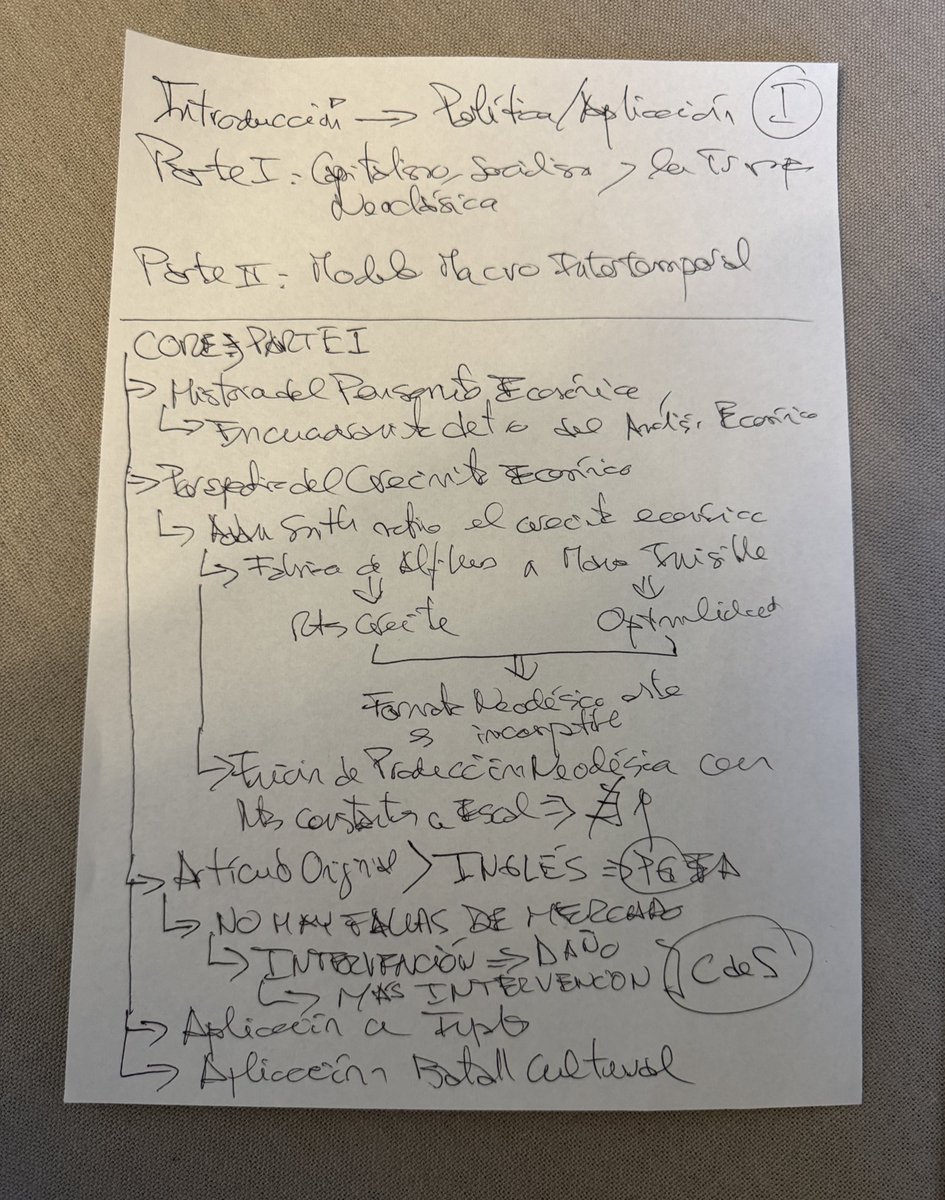 Introducción → Política/Aplicación I
Parte I: Capitalismo, Socialismo y la
Neoclásica
Parte II: Modelo Macro Intertemporal
CORE PARTE I
→ Historia del Pensamiento Económico
↳ del Análisis Económico
→ Perspectiva del Crecimiento Económico
↳ Adam Smith el crecimiento económico
↳ Fábrica de Alfileres a Mano Invisible
⇓ ⇓
Crecite Optimalidad
⇓
Neoclásica
↳ Función de Producción Neoclásica con
constantes a Escala ⇒
→ Artículo Original INGLÉS ⇒
↳ NO HAY FALLAS DE MERCADO
↳ INTERVENCIÓN ⇒ DAÑO
↳ MAS INTERVENCION CdeS
→ Aplicación a
→ Aplicación Batall Cultural